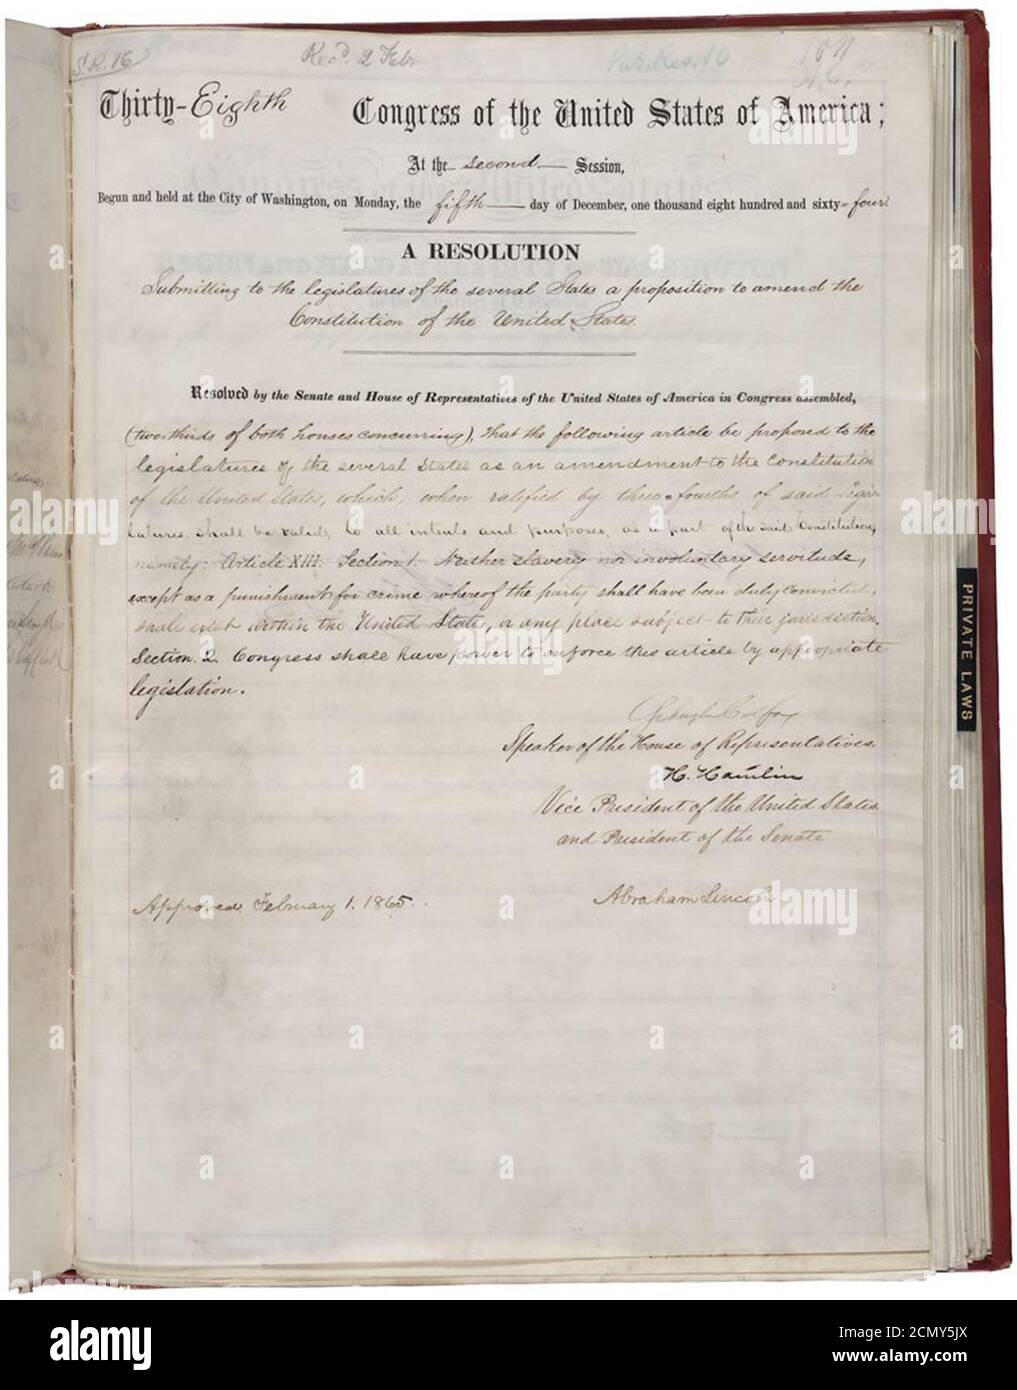 S.R. 16
Rec'd. 2 Feb.
Pub. Res. 10
Thirty-Eighth Congress of the United States of America;
At the second Session,
Begun and held at the City of Washington, on Monday, the fifth day of December, one thousand eight hundred and sixty-four
A RESOLUTION
Submitting to the legislatures of the several States a proposition to amend the
Constitution of the United States.
Resolved by the Senate and House of Representatives of the United States of America in Congress assembled,
(two-thirds of both houses concurring), That the following article be proposed to the
legislatures of the several States as an amendment to the Constitution
of the United States, which, when ratified by three-fourths of said Legis-
latures shall be valid, to all intents and purposes, as a part of the said Constitution,
namely: Article XIII. Section 1. Neither slavery nor involuntary servitude,
except as a punishment for crime whereof the party shall have been duly convicted,
shall exist within the United States, or any place subject to their jurisdiction.
Section. 2. Congress shall have power to enforce this article by appropriate
legislation.
Schuyler Colfax
Speaker of the House of Representatives.
H. Hamlin
Vice President of the United States
and President of the Senate
Approved, February 1. 1865.
Abraham Lincoln
PRIVATE LAWS
alamy
alamy
Image ID: 2CMY5JX
www.alamy.com